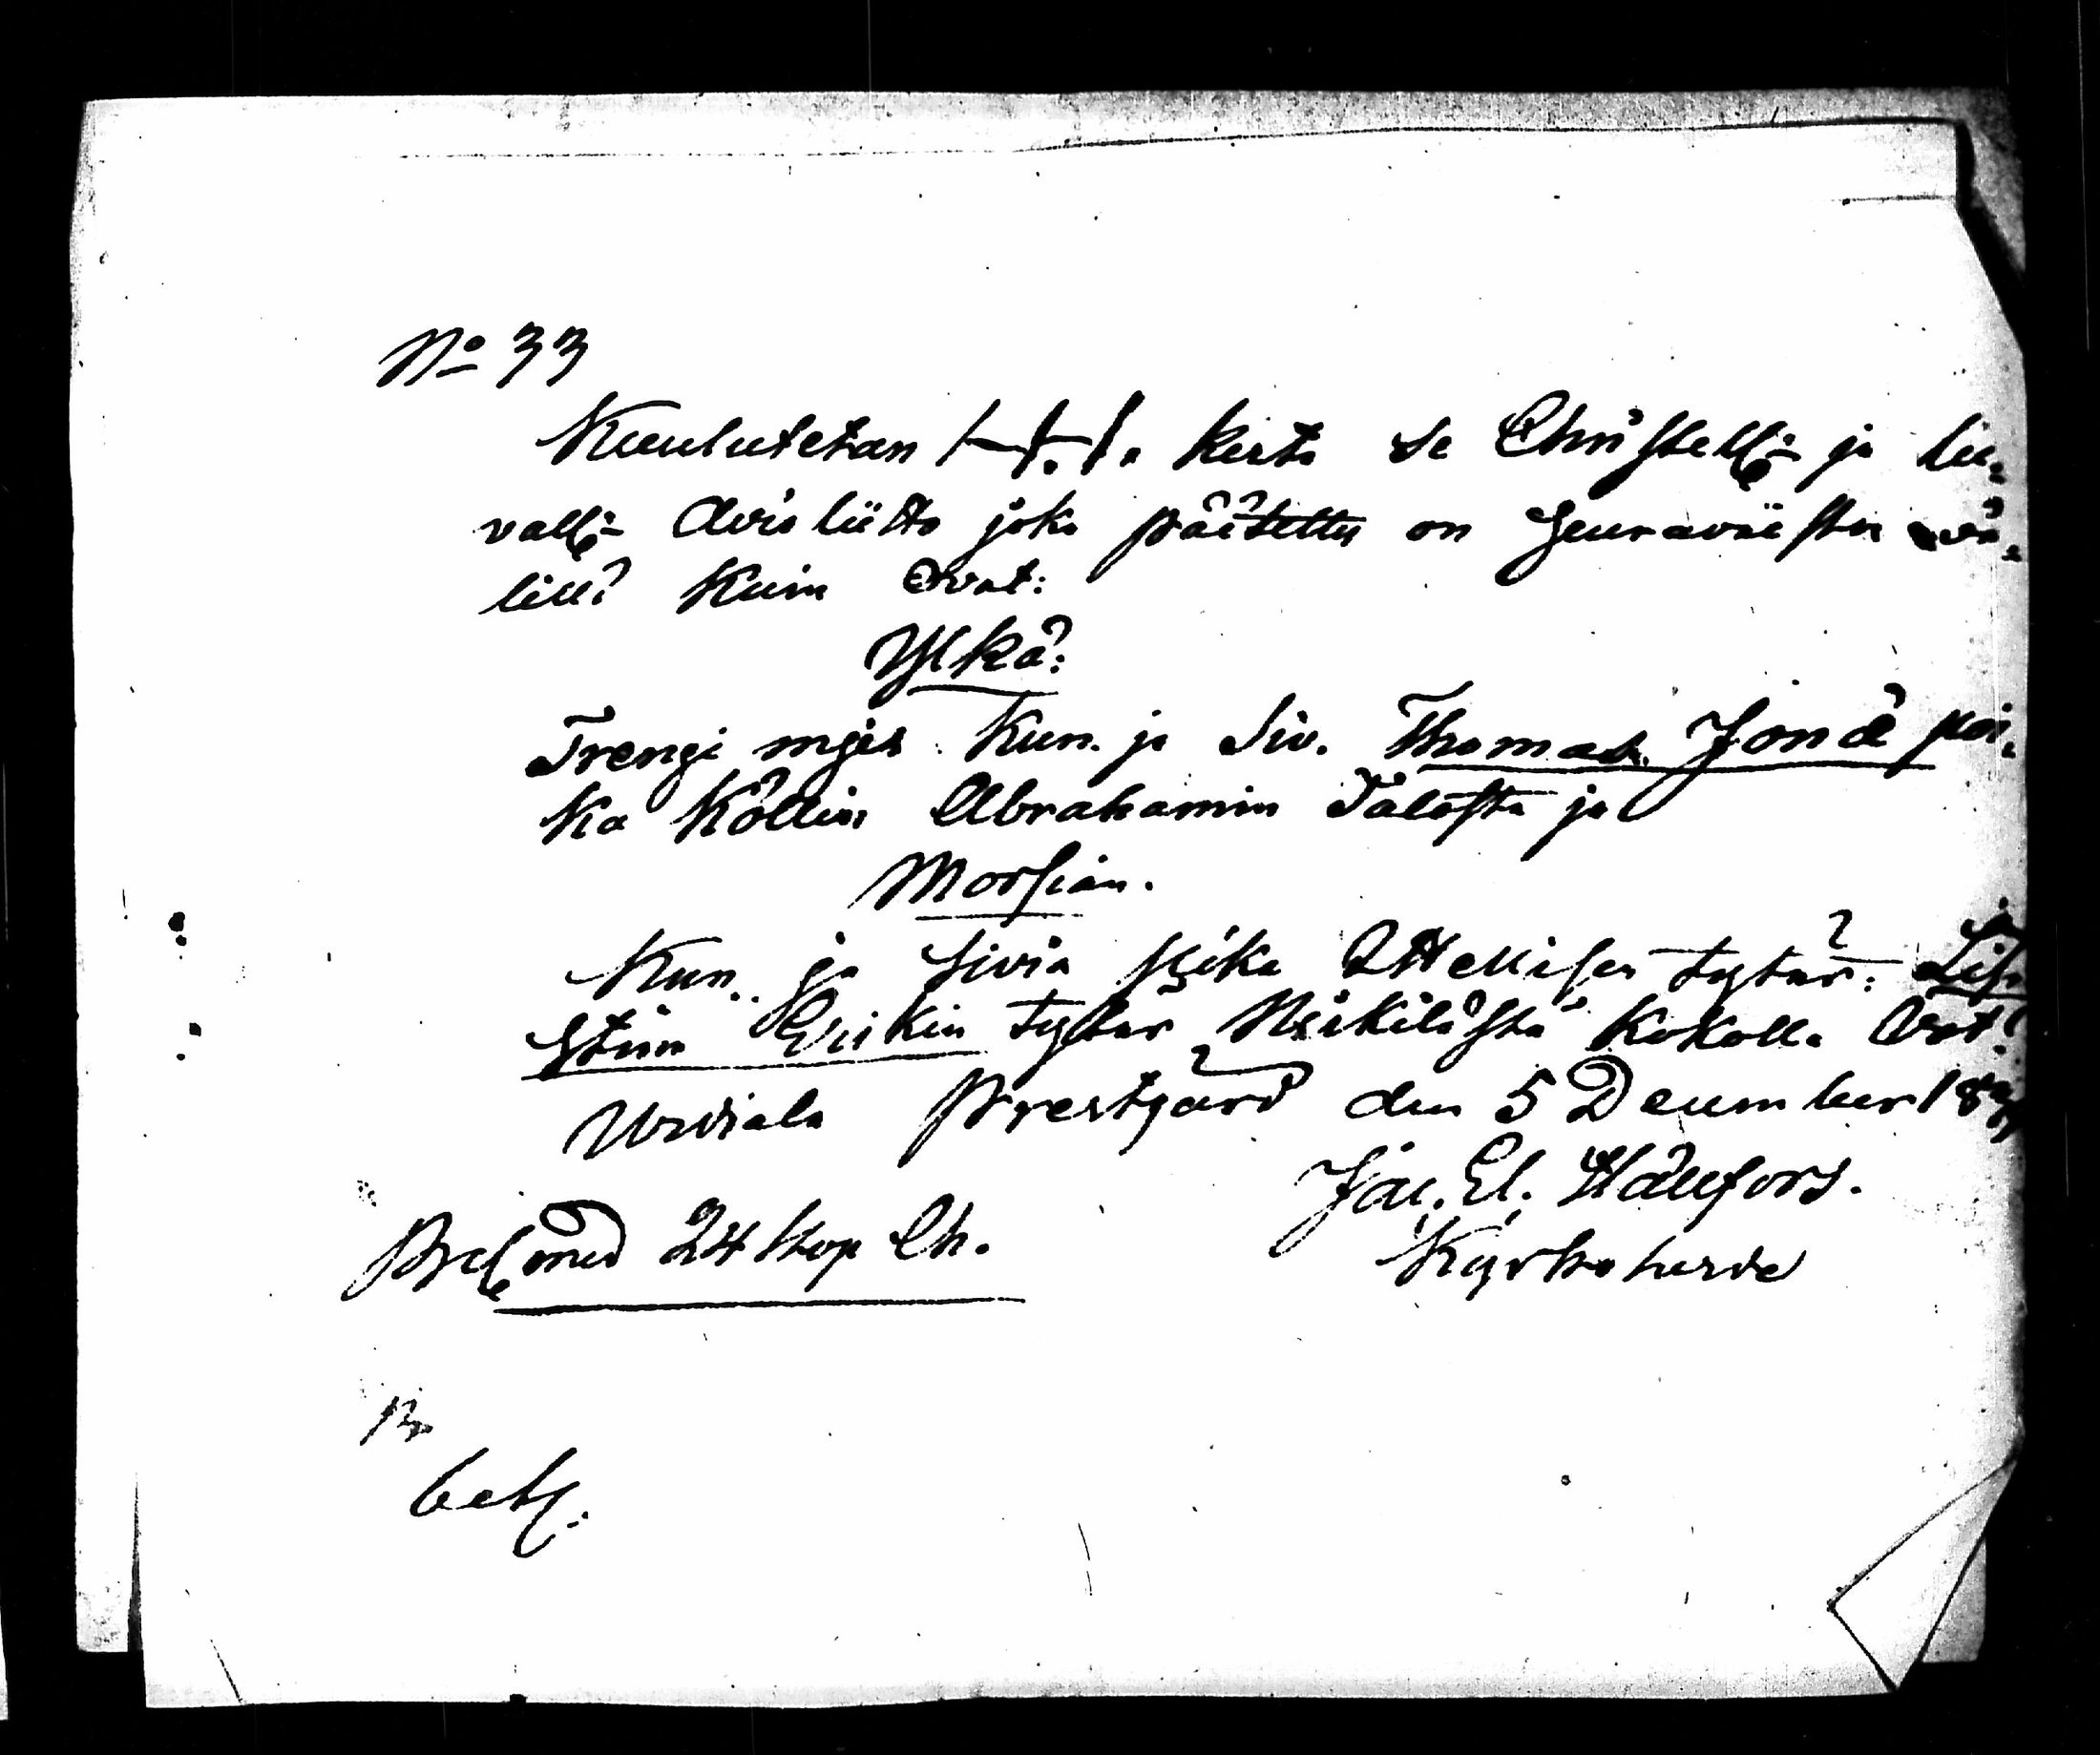 No 33
Kuulutetan 1. kerta se Christelli: ja lu-
valli: Avio liitto joka päätetty on Seuravaisten vä-
lillä Kuin Ovat:
Ylkä:
Trengi mjes Kun. ja Siv. Thomas Jona poi-
ka Köllin Abrahamin Talosta ja
Morsian.
Kun. ja Sivia Pika tytär:
Stiin Erikin tytär Kokolla Ovat.
Urdiala Prestgård den 5 December 18
Jac. El. Hällfors.
Kyrkoherde
med 24 kop Ch.
bet.